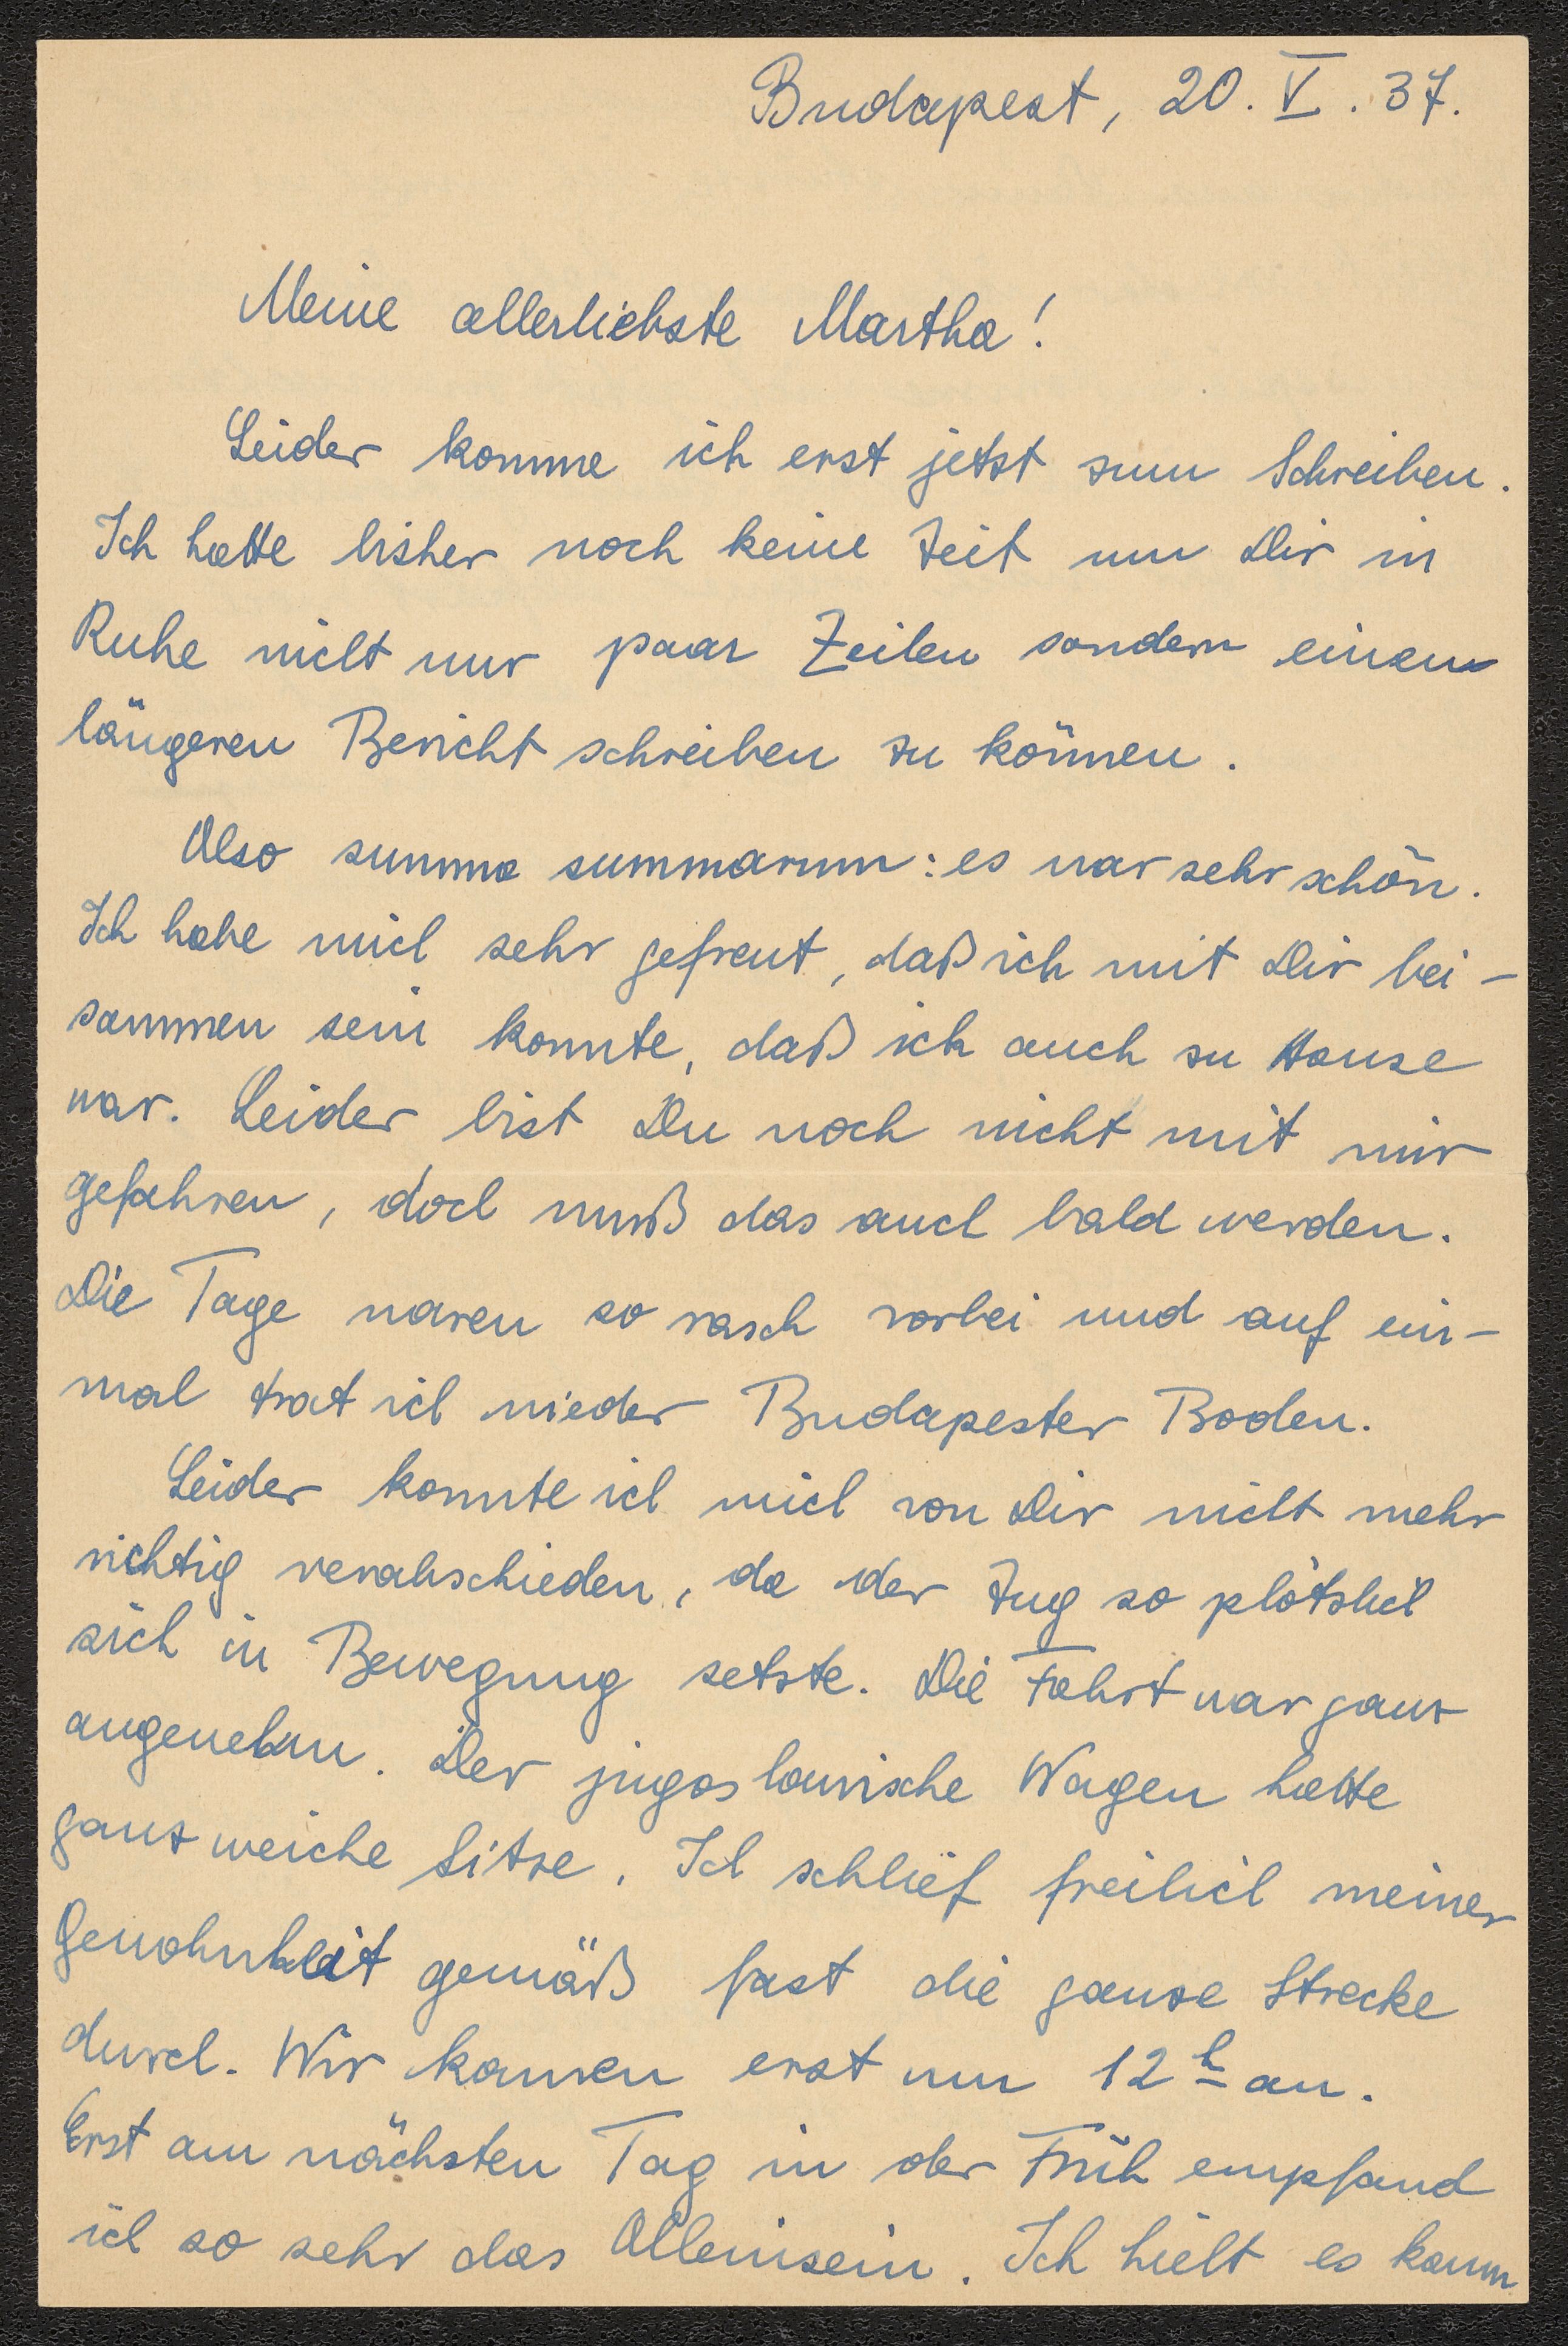 Budapest, 20. V. 37.
Meine allerliebste Martha!
Leider komme ich erst jetzt zum Schreiben.
Ich hatte bisher noch keine Zeit um Dir in
Ruhe nicht nur paar Zeilen sondern einen
längeren Bericht schreiben zu können.
Also summa summarum: es war sehr schön.
Ich habe mich sehr gefreut, daß ich mit Dir bei-
sammen sein konnte, daß ich auch zu Hause
war. Leider bist Du noch nicht mit mir
gefahren, doch muß das auch bald werden.
Die Tage waren so rasch vorbei und auf ein-
mal trat ich wieder Budapester Boden.
Leider konnte ich mich von Dir nicht mehr
richtig verabschieden, da der Zug so plötzlich
sich in Bewegung setzte. Die Fahrt war ganz
angenehm. Der jugoslawische Wagen hatte
ganz weiche Sitze. Ich schlief freilich meiner
Gewohnheit gemäß fast die ganze Strecke
durch. Wir kamen erst um 12 h an.
Erst am nächsten Tag in der Früh empfand
ich so sehr das Alleinsein. Ich hielt es kaum